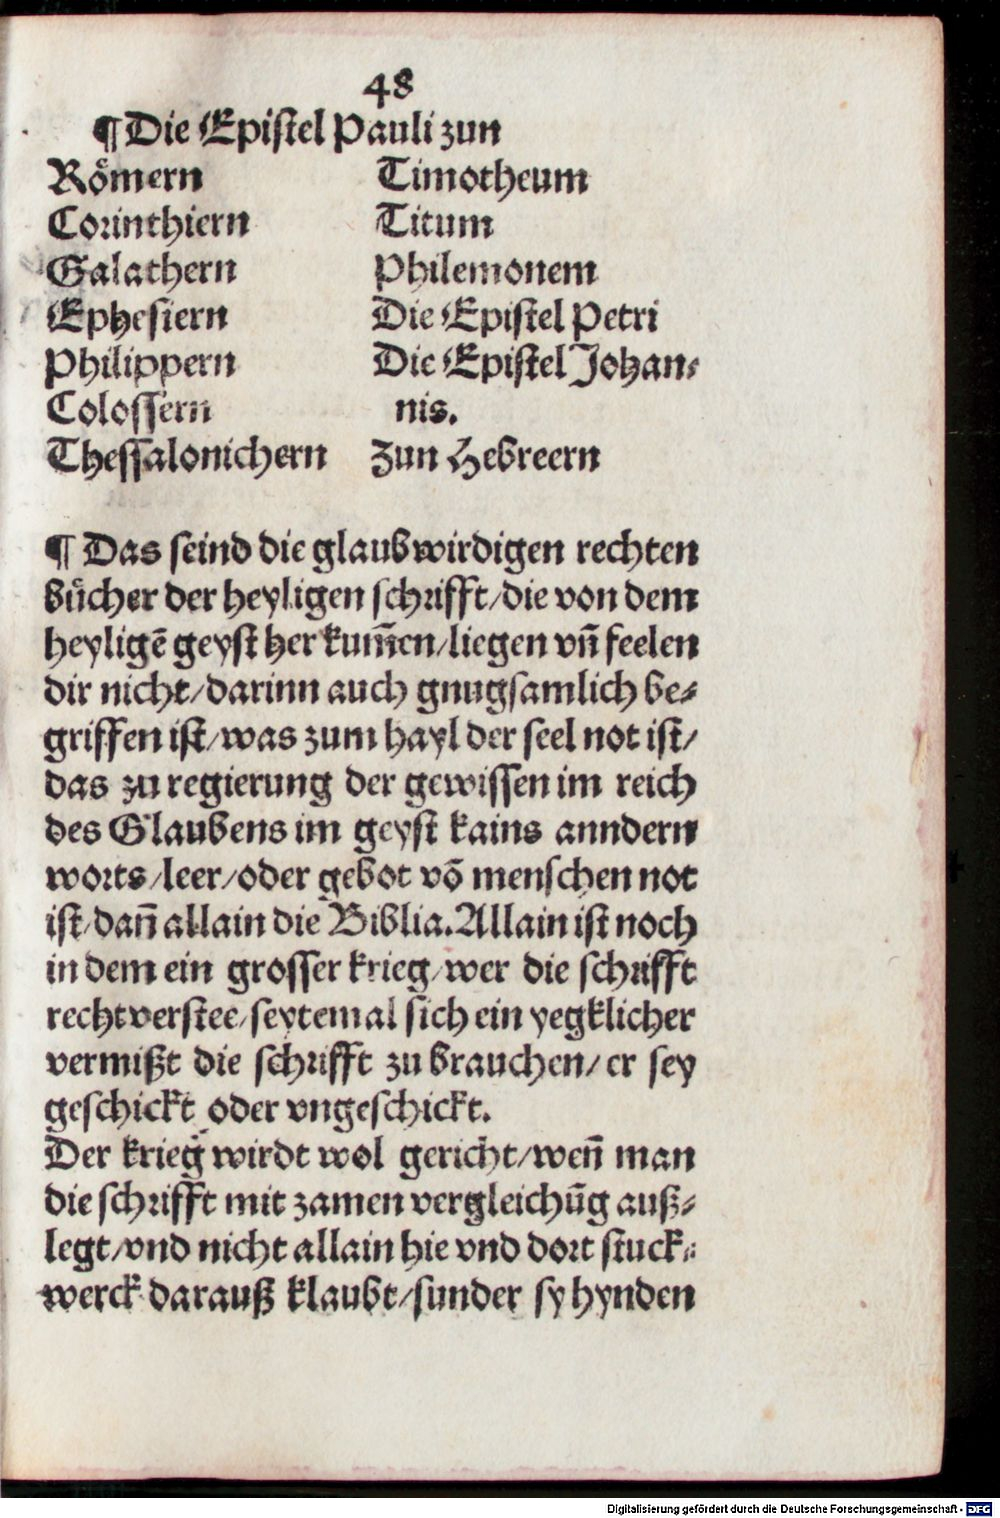 48
¶ Die Epistel Pauli zun
Rômern
Corinthiern
Galathern
Ephesiern
Philippern
Colossern
Thessalonichern
Timotheum
Titum
Philemonem
Die Epistel Petri
Die Epistel Johan⸗
nis.
Zun Hebreern
¶ Das seind die glaubwirdigen rechten
bücher der heyligen schrifft/die von dem
heyligẽ geyst her kum̃en/liegen vñ feelen
dir nicht/darinn auch gnugsamlich be⸗
griffen ist/was zum hayl der seel not ist/
das zu regierung der gewissen im reich
des Glaubens im geyst kains anndern
worts/leer/oder gebot võ menschen not
ist/dañ allain die Biblia. Allain ist noch
in dem ein grosser krieg/wer die schrifft
recht verstee/seytemal sich ein yegklicher
vermißt die schrifft zu brauchen/er sey
geschickt oder vngeschickt.
Der krieg wirdt wol gericht/weñ man
die schrifft mit zamen vergleichũg auß⸗
legt/vnd nicht allain hie vnd dort stuck⸗
werck darauß klaubt/sunder sy hynden
Digitalisierung gefördert durch die Deutsche Forschungsgemeinschaft - DFG